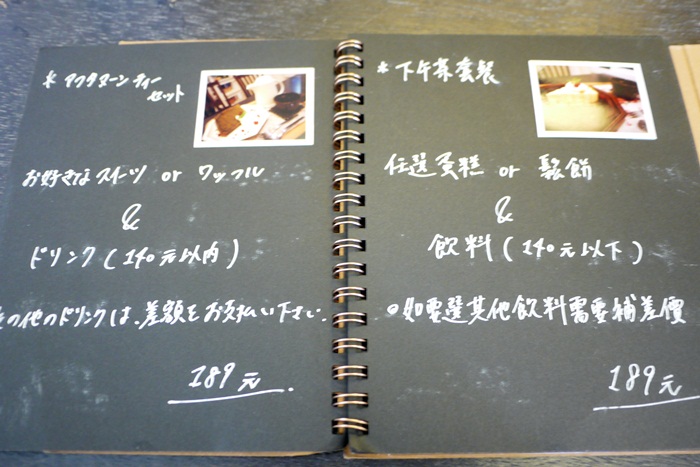 * アフタヌーンティー
セット
お好きなスイーツ or ワッフル
&
ドリンク(140元以内)
の他のドリンクは、差額をお支払い下さい.
189元.
* 下午茶套餐
任選蛋糕 or 鬆餅
&
飲料(140元以下)
◦如要選其他飲料需要補差價
189元